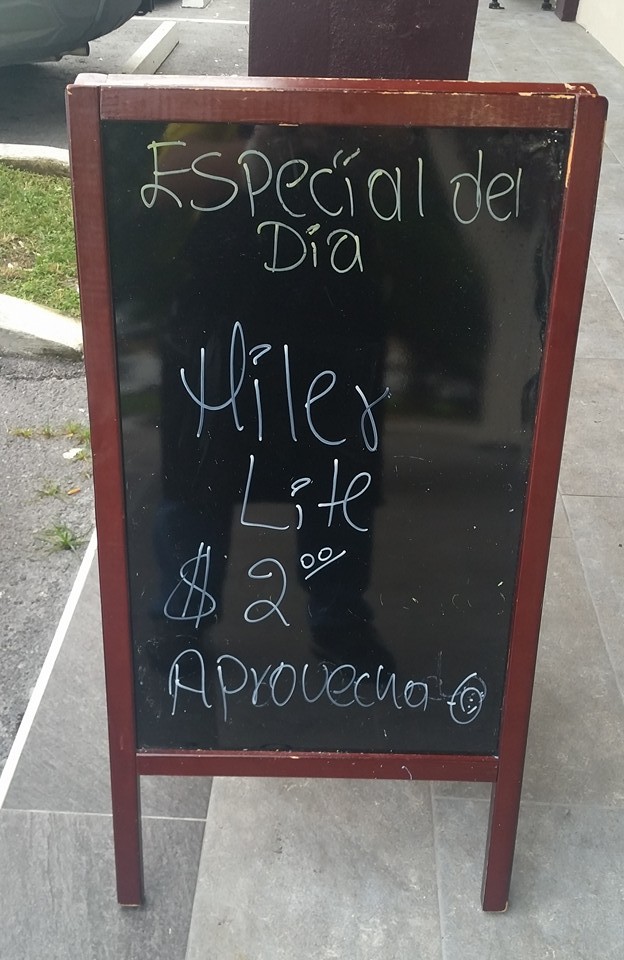 Especial del
Día
Miler
Lite
$ 2.00
Aprovecha